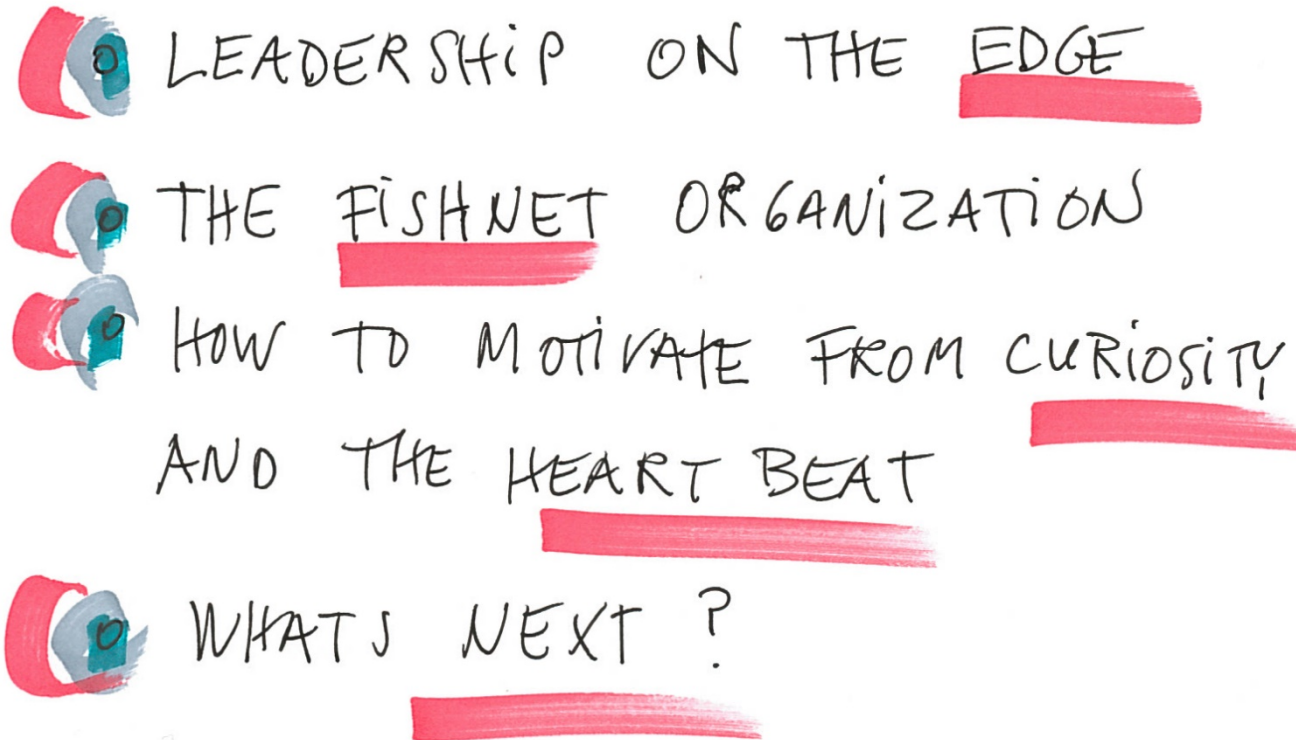 LEADERSHiP ON THE EDGE
THE FiSHNET ORGANiZATiON
HOW TO MOTiVATE FROM CURiOSiTY
AND THE HEART BEAT
WHATS NEXT ?